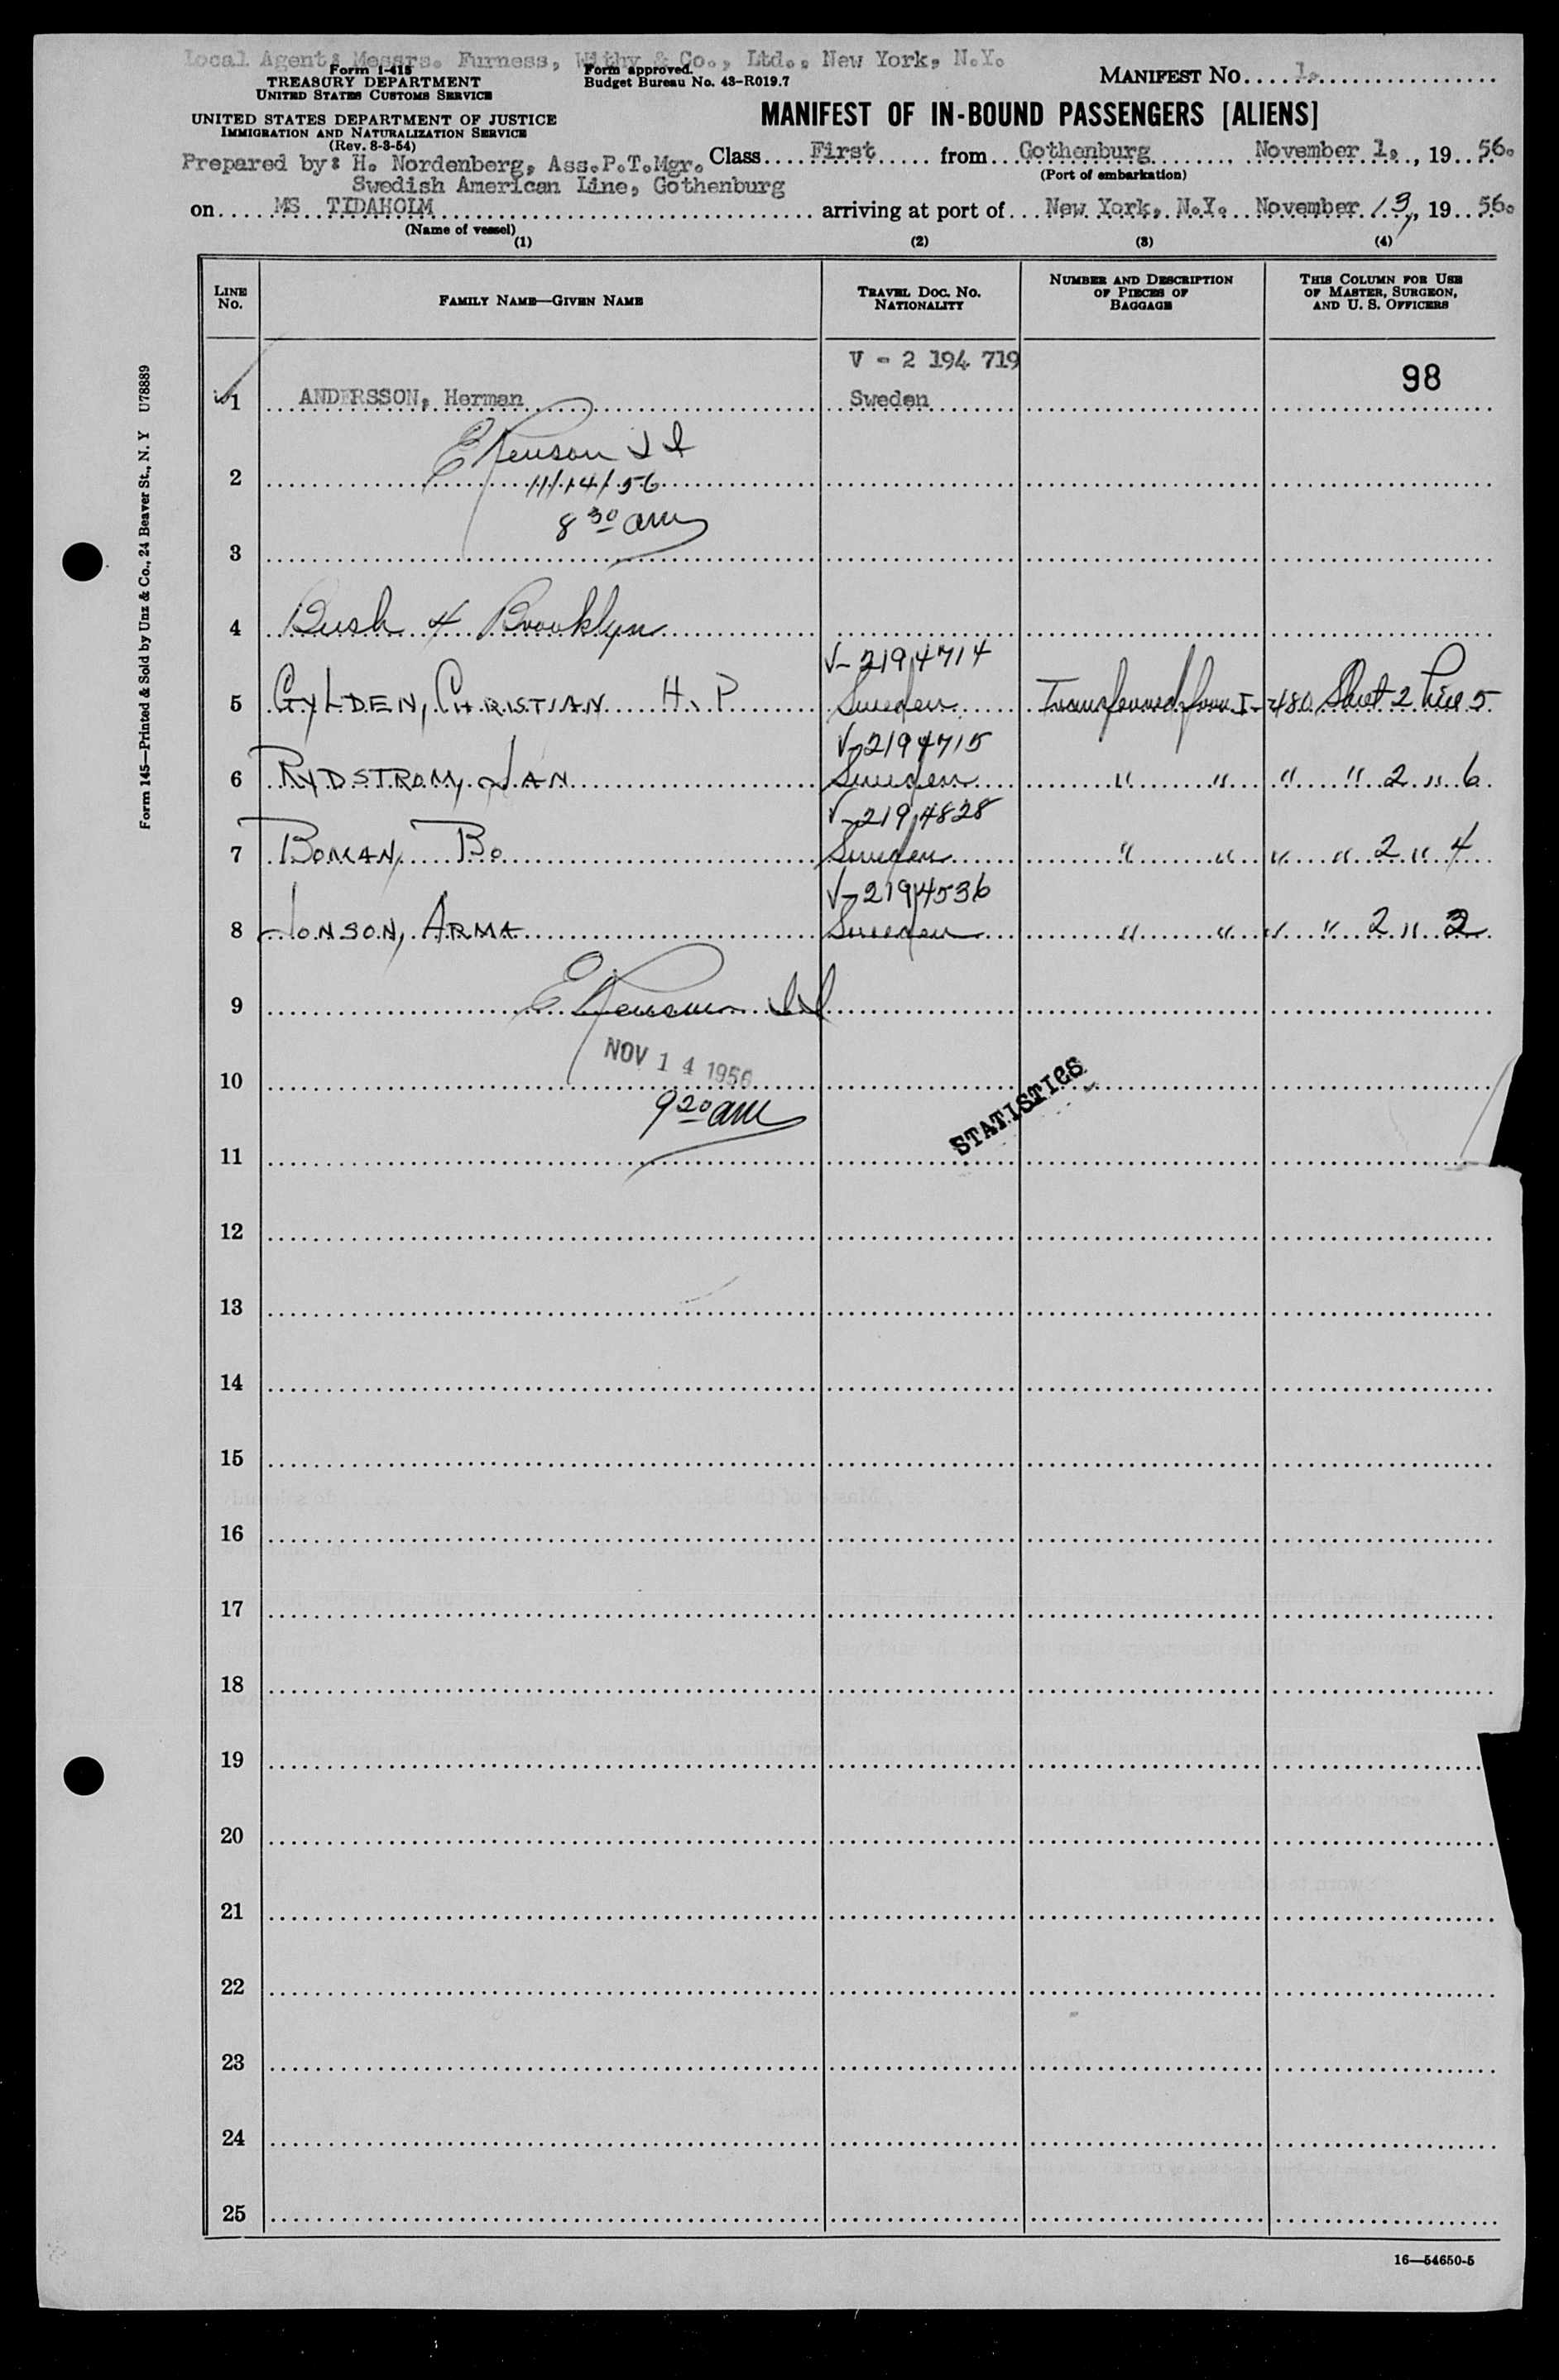 Local Agent: Messrs. Furness, Withy & Co., Ltd., New York, N.Y.
Form I-415
TREASURY DEPARTMENT
UNITED STATES CUSTOMS SERVICE
Form approved.
Budget Bureau No. 43-R019.7
MANIFEST NO. 1.
UNITED STATES DEPARTMENT OF JUSTICE
IMMIGRATION AND NATURALIZATION SERVICE
(Rev. 8-3-54)
MANIFEST OF IN-BOUND PASSENGERS [ALIENS]
Prepared by: H. Nordenberg, Ass.P.T.Mgr.
Swedish American Line, Gothenburg
Class First from Gothenburg November 1., 19 56.
(Port of embarkation)
on MS TIDAHOLM arriving at port of New York, N.Y. November 13, 19 56.
(Name of vessel)
(1) (2) (3) (4)
LINE NO. FAMILY NAME—GIVEN NAME TRAVEL DOC. NO. NATIONALITY NUMBER AND DESCRIPTION OF PIECES OF BAGGAGE THIS COLUMN FOR USE OF MASTER, SURGEON, AND U. S. OFFICERS
V - 2 194 719
98
1 ANDERSSON, Herman Sweden
2
11/14/56
8 30 am
3
4 Bush 4 Brooklyn
V-2194714
5 GYLDEN, CHRISTIAN H. P Sweden Transferred from I-480 Sheet 2 Line 5
V-2194715
6 RYDSTROM, JAN Sweden " " " " 2 " 6
V-2194828
7 BOMAN, BO Sweden " " " " 2 " 4
V-2194536
8 JONSON, ARMA Sweden " " " " 2 " 2
9
NOV 14 1956
10
9 20 am
STATISTICS
11
12
13
14
15
16
17
18
19
20
21
22
23
24
25
16—54650-5
Form 145—Printed & Sold by Unz & Co., 24 Beaver St., N. Y U78889